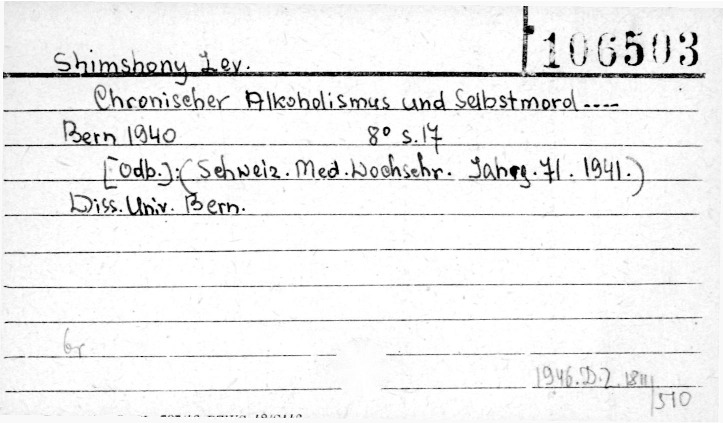 106503
Shimshony Lev.
Chronischer Alkoholismus und Selbstmord ----
Bern 1940 8° s. 17
[Odb.]: (Schweiz. Med. Wochschr. Jahrg. 71. 1941.)
Diss. Univ. Bern.
br
1946. D. 2. 18III/510